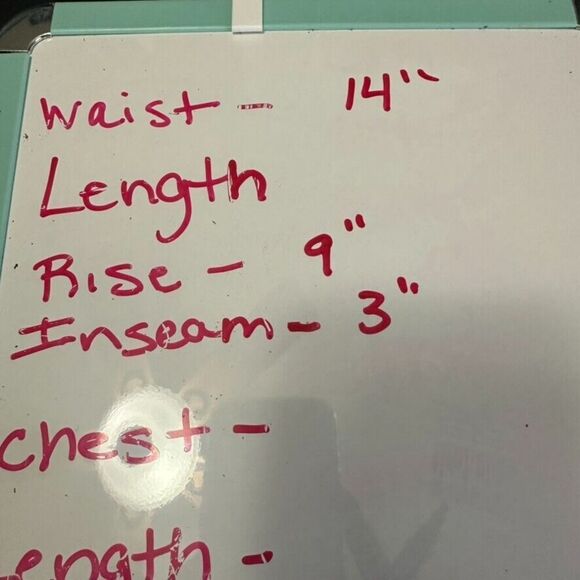 Waist - 14"
Length
Rise - 9"
Inseam - 3"
chest -
Length -